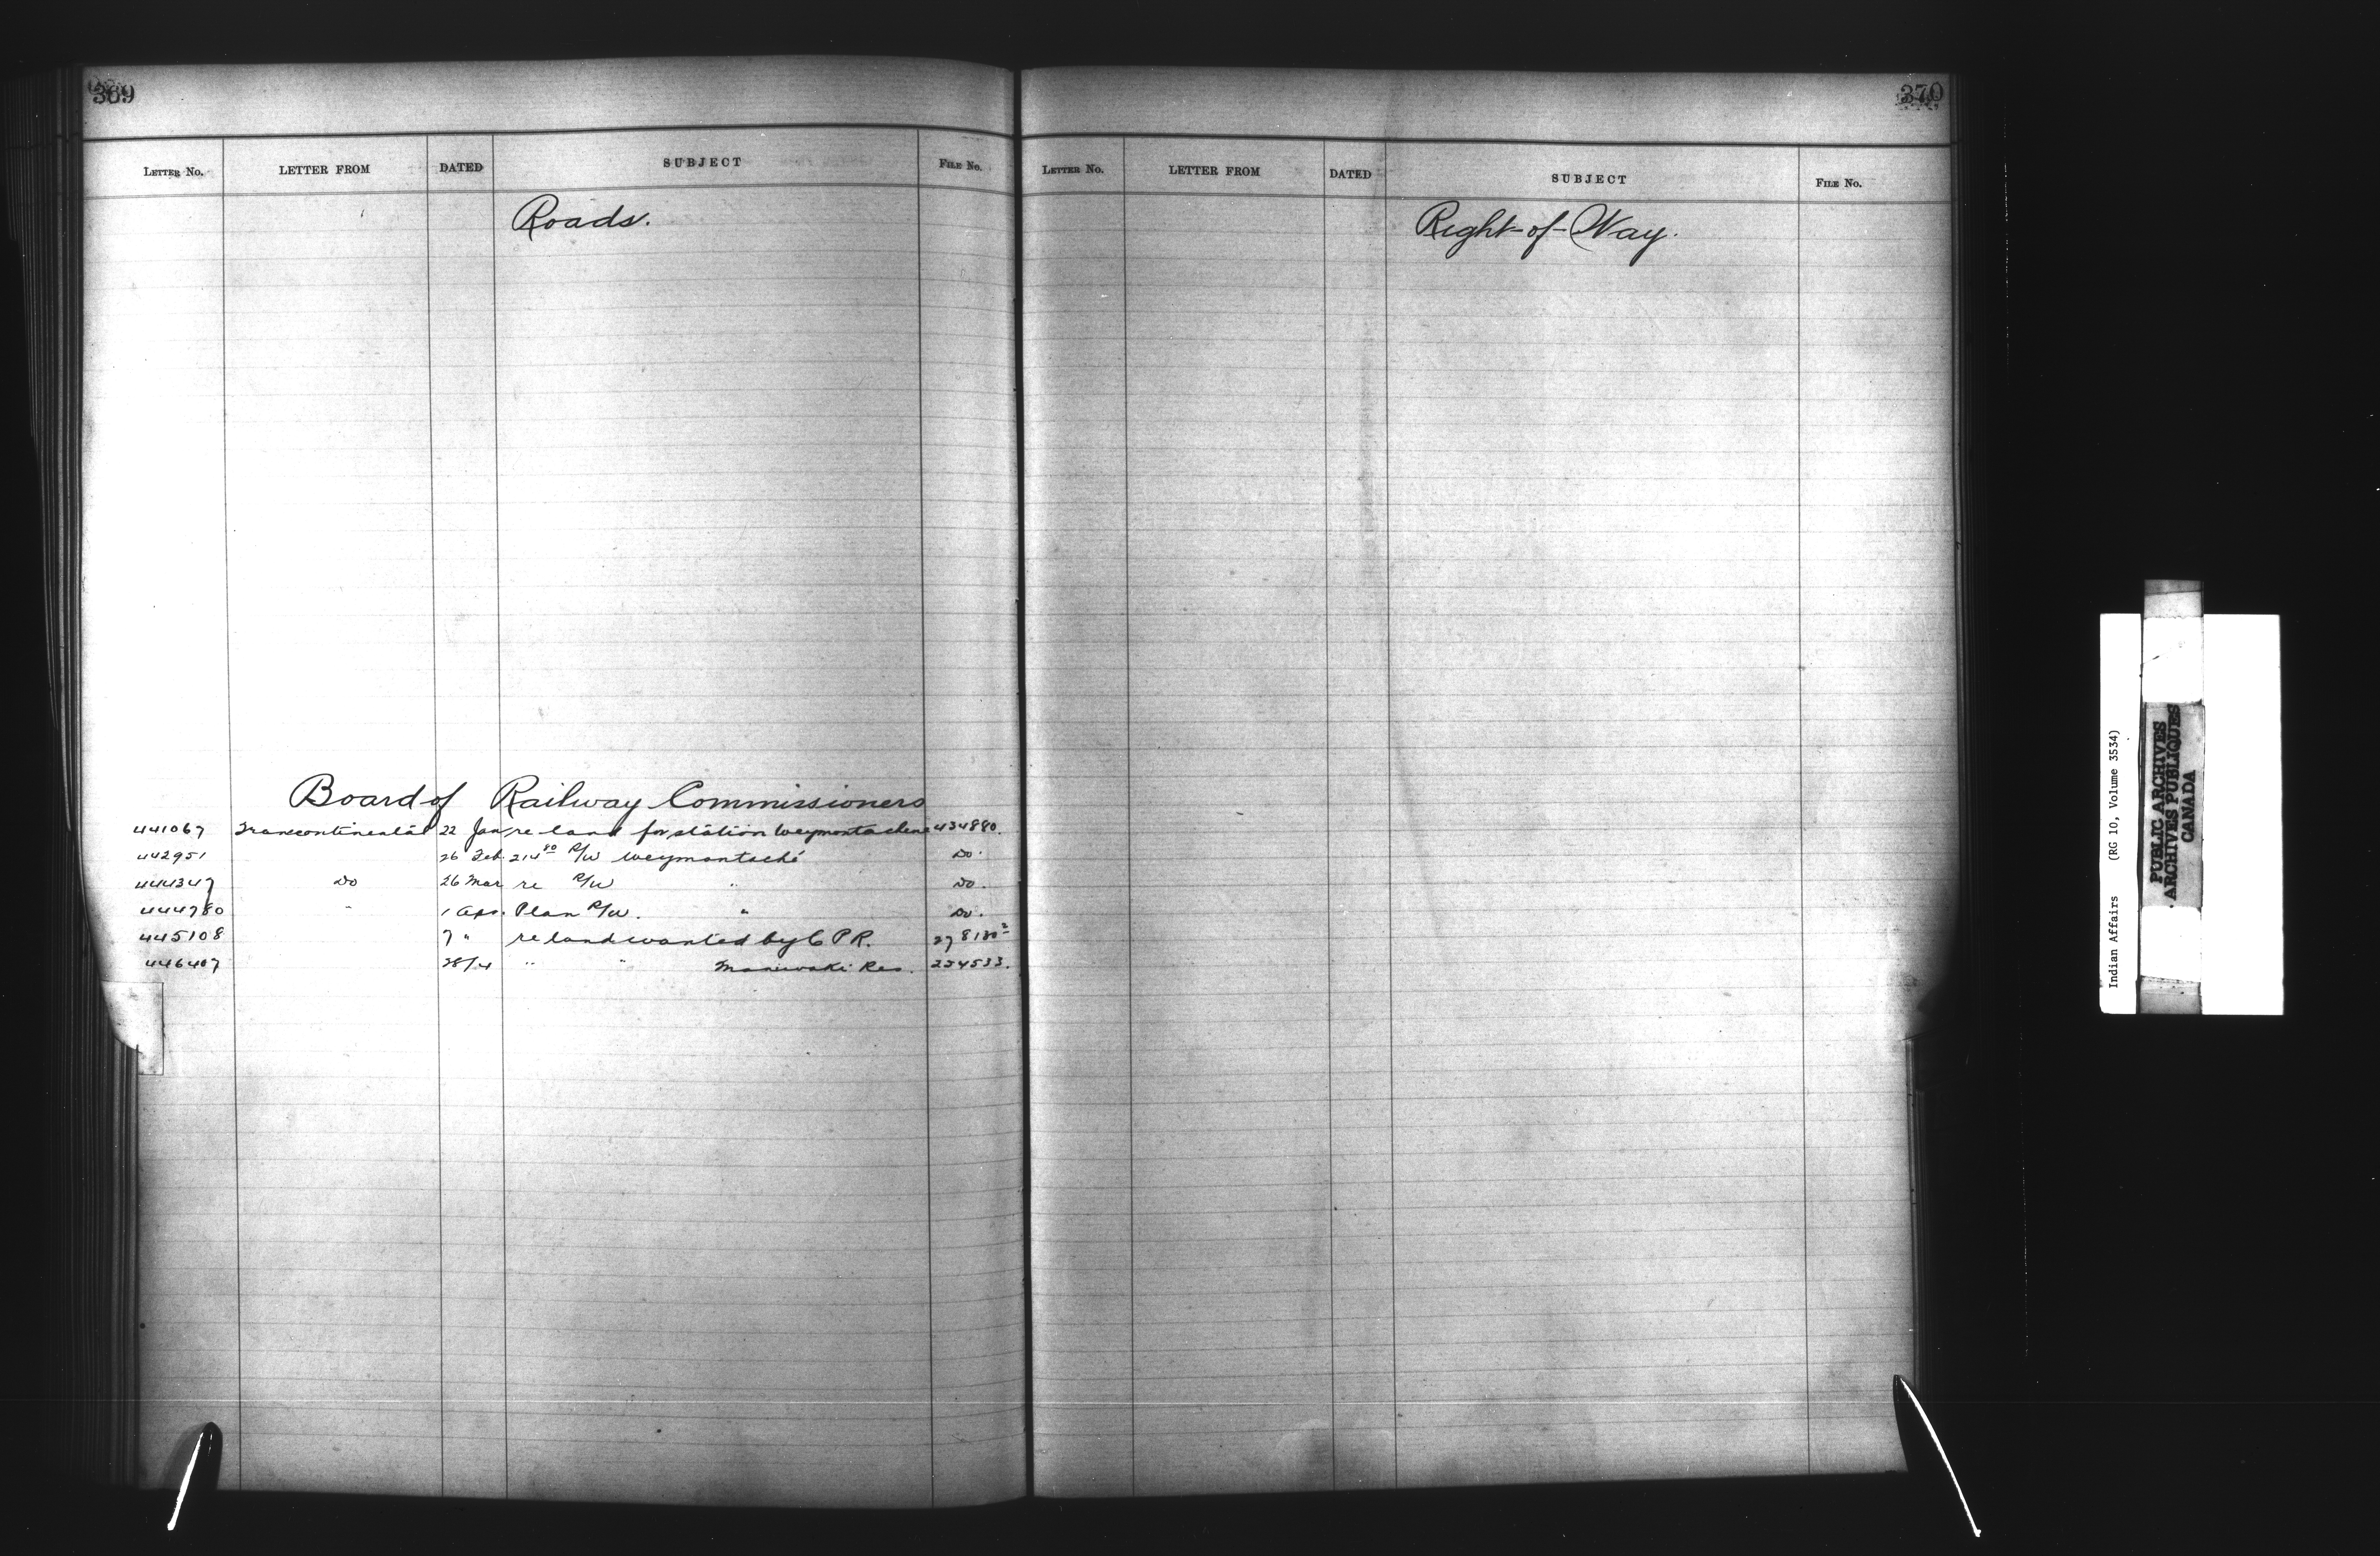 369
LETTER NO. LETTER FROM DATED SUBJECT FILE No.
Roads.
Board of Railway Commissioners
441067 Transcontinental 22 Jan re land for station Weymontachene 434880.
442951 26 Feb. 214 80 R/W Weymontaché Do.
444347 Do 26 Mar re R/W " Do.
444780 " 1 Apr. Plan R/W. " Do.
445108 7 " re land wanted by C P R. 278130 2
446407 28/4 " " Maniwaki Res. 254533.
370
LETTER NO. LETTER FROM DATED SUBJECT FILE No.
Right-of-Way.
Indian Affairs (RG 10, Volume 3534)
PUBLIC ARCHIVES
ARCHIVES PUBLIQUES
CANADA